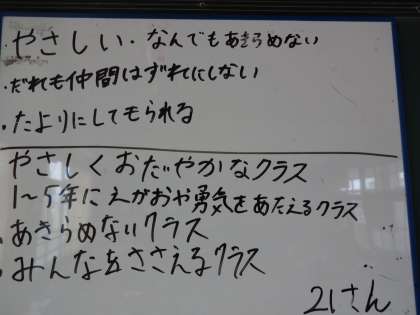 ・やさしい・なんでもあきらめない
・だれも仲間はずれにしない
・たよりにしてもられる
やさしくおだやかなクラス
1〜5年にえがおや勇気をあたえるクラス
・あきらめないクラス
・みんなをささえるクラス
21さん